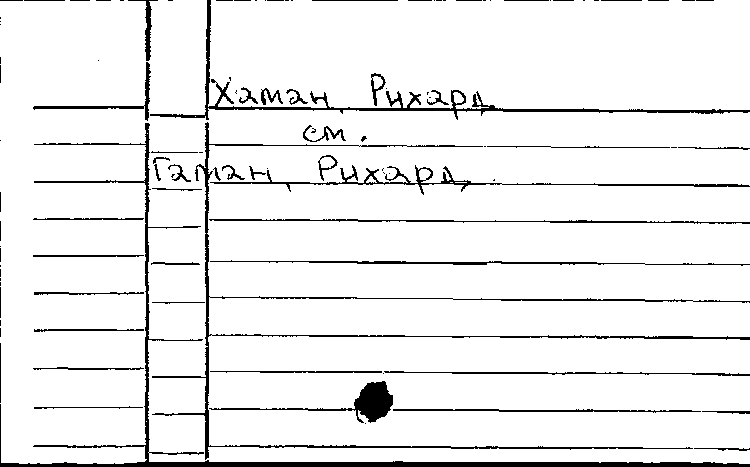 Хаман, Рихард.
см.
Гаман, Рихард.